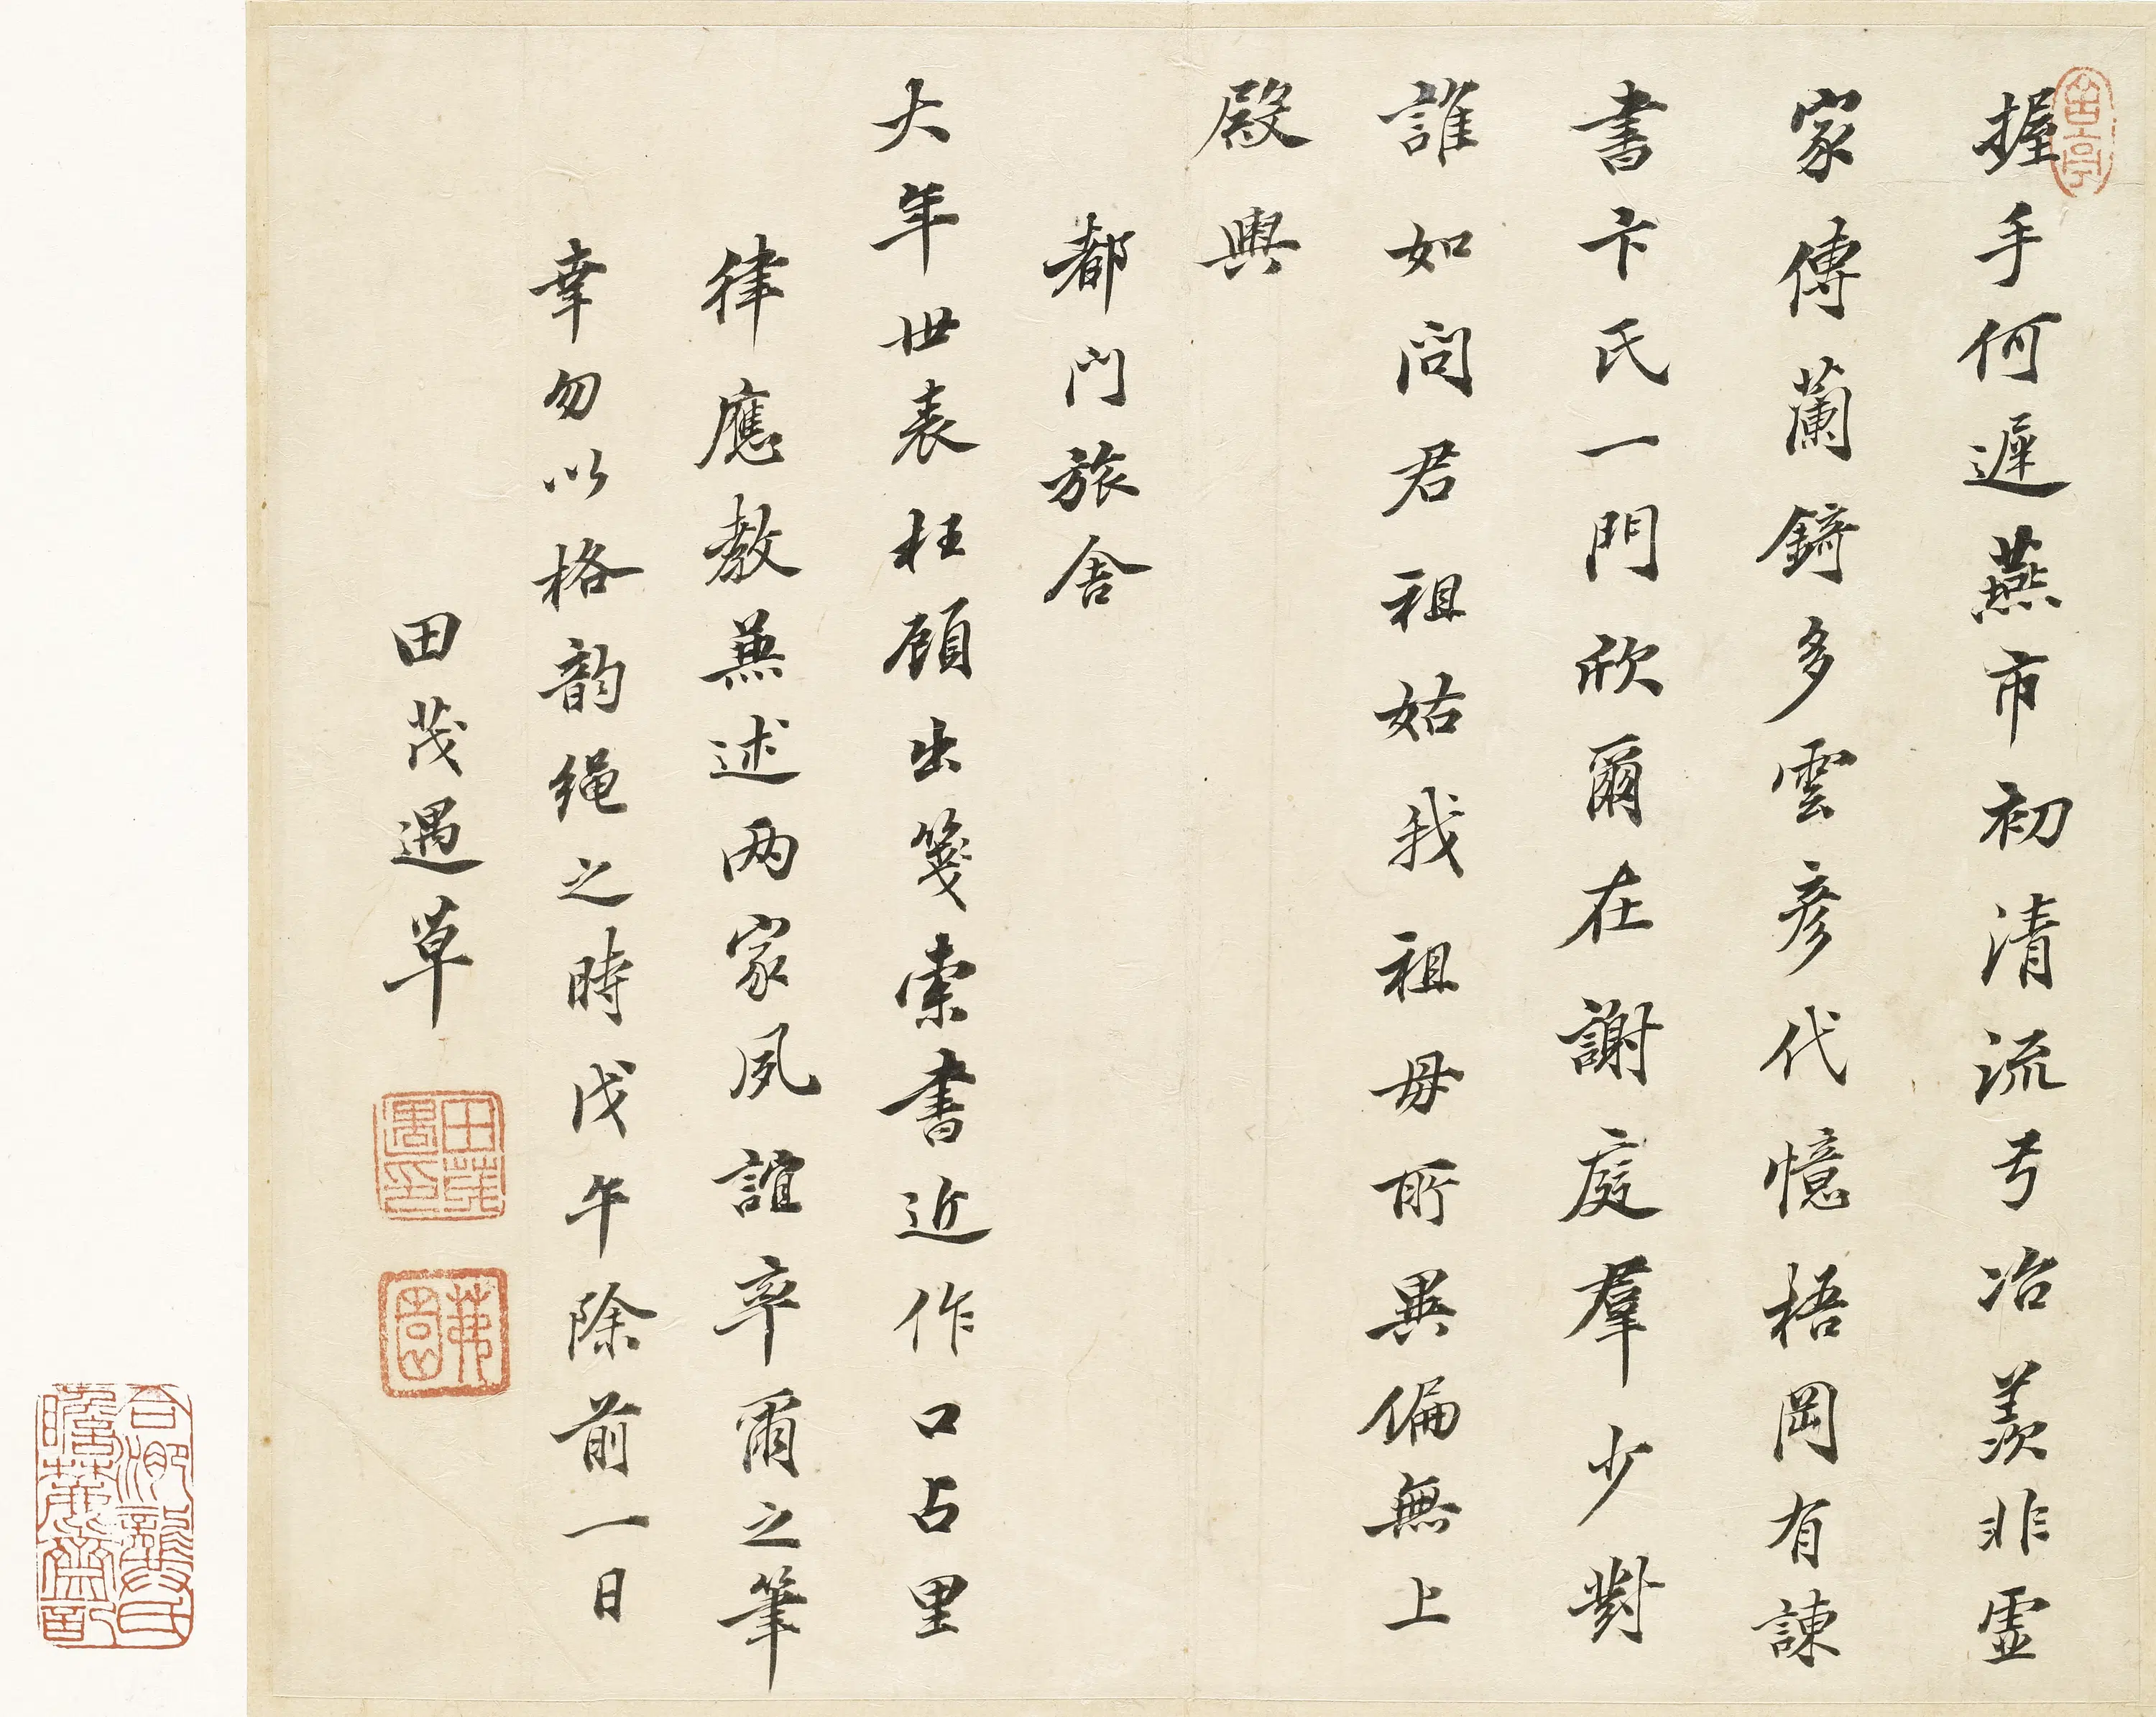 握手何遲燕市初清流弓冶羨非虛
家傳蘭錡多雲彥代憶梧岡有諫
書卞氏一門欣爾在謝庭羣少對
誰如問君祖姑我祖母所異偏無上
殿輿
都門旅舍
大年世表枉顧出箋索書近作口占里
律應教兼述两家夙誼率爾之筆
幸勿以格韵繩之時戊午除前一日
田茂遇草
田茂遇印